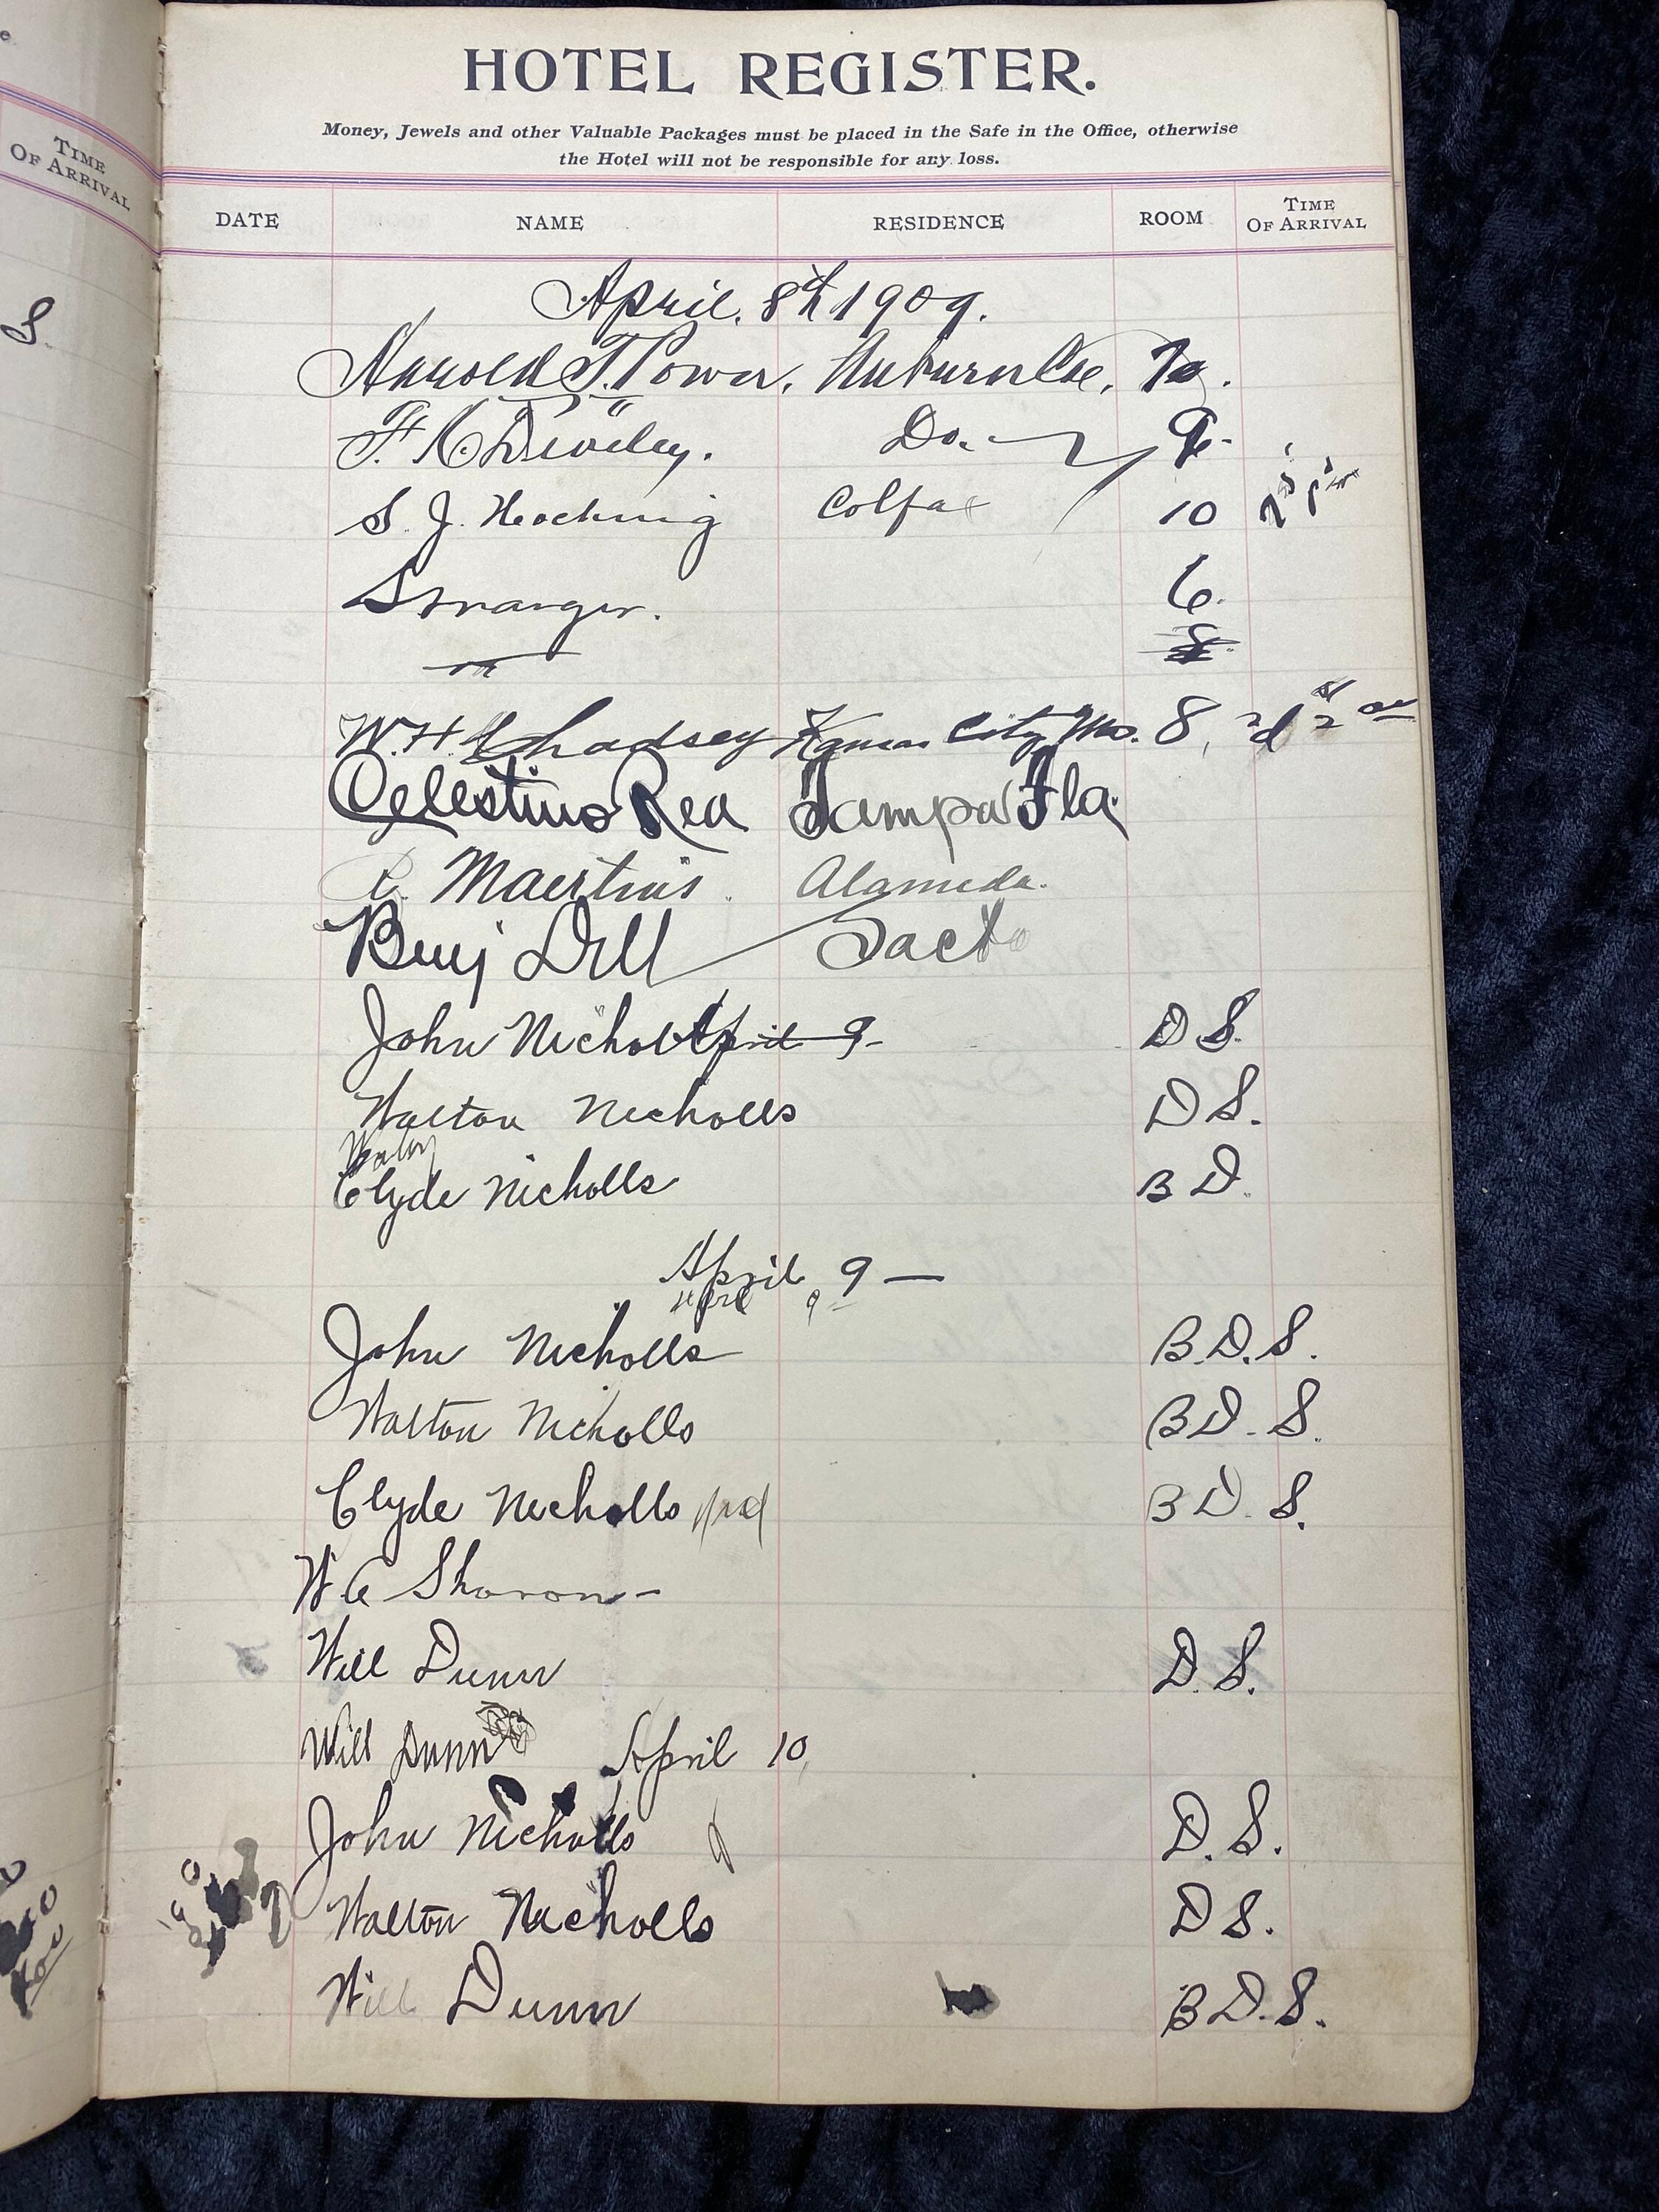 TIME
OF ARRIVAL
S.
HOTEL REGISTER.
Money, Jewels and other Valuable Packages must be placed in the Safe in the Office, otherwise
the Hotel will not be responsible for any loss.
DATE NAME RESIDENCE ROOM TIME OF ARRIVAL
April. 8th 1909.
Harold T. Power. Auburn Cal.
F. Do. 9.
S. J. Colfax 10
Stranger. 6.
W. H. Chadsey Kansas City Mo. 8,
Celestino Rea Tampa Fla.
Maertins. Alameda.
Benj Dill Sacto
John Nicholls April 9- D S.
Walton Nicholls D S.
Clyde Nicholls B D.
April 9 —
John Nicholls B. D. S.
Walton Nicholls B D. S.
Clyde Nicholls B D. S.
W C Sharon -
Will Dunn D. S.
Will Dunn April 10
John Nicholls D. S.
Walton Nicholls D S.
Will Dunn B D. S.